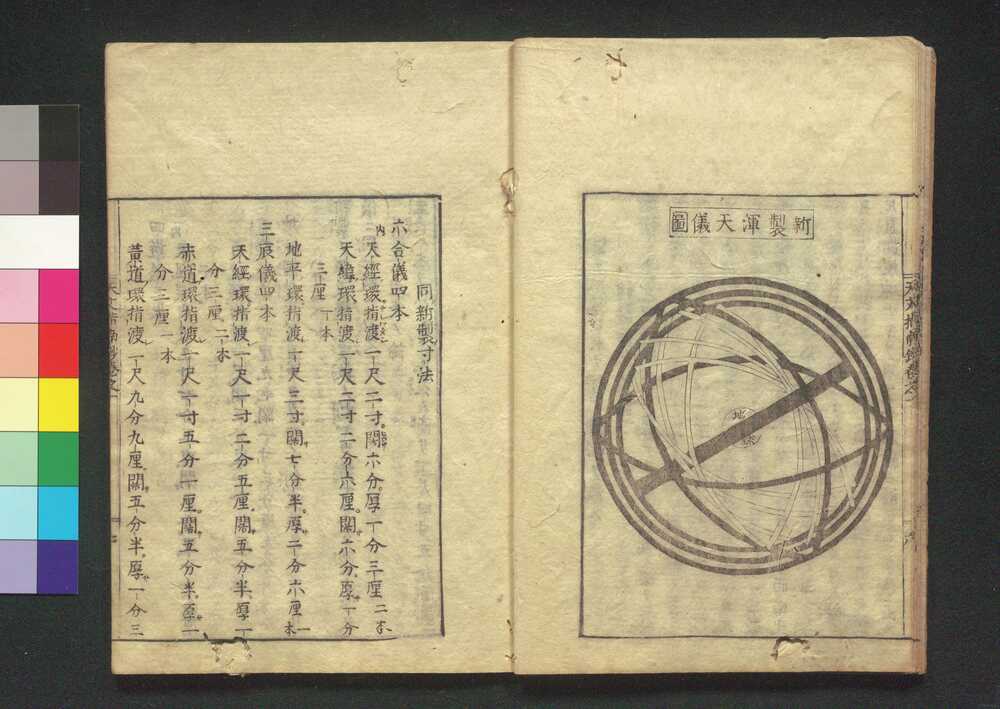 新製渾天儀圖
地球
同新製寸法
六合儀四本
内天經環指渡一尺二寸闊六分厚一分三厘二本
天緯環指渡一尺二寸二分六厘闊六分厚一分
三厘一本
地平環指渡一尺三寸闊七分半厚二分六厘一本
三辰儀四本
天經環指渡一尺一寸二分五厘闊五分半厚一
分三厘二本
赤道環指渡一尺一寸五分一厘闊五分半厚一
分三厘一本
黄道環指渡一尺九分九厘闊五分半厚一分三